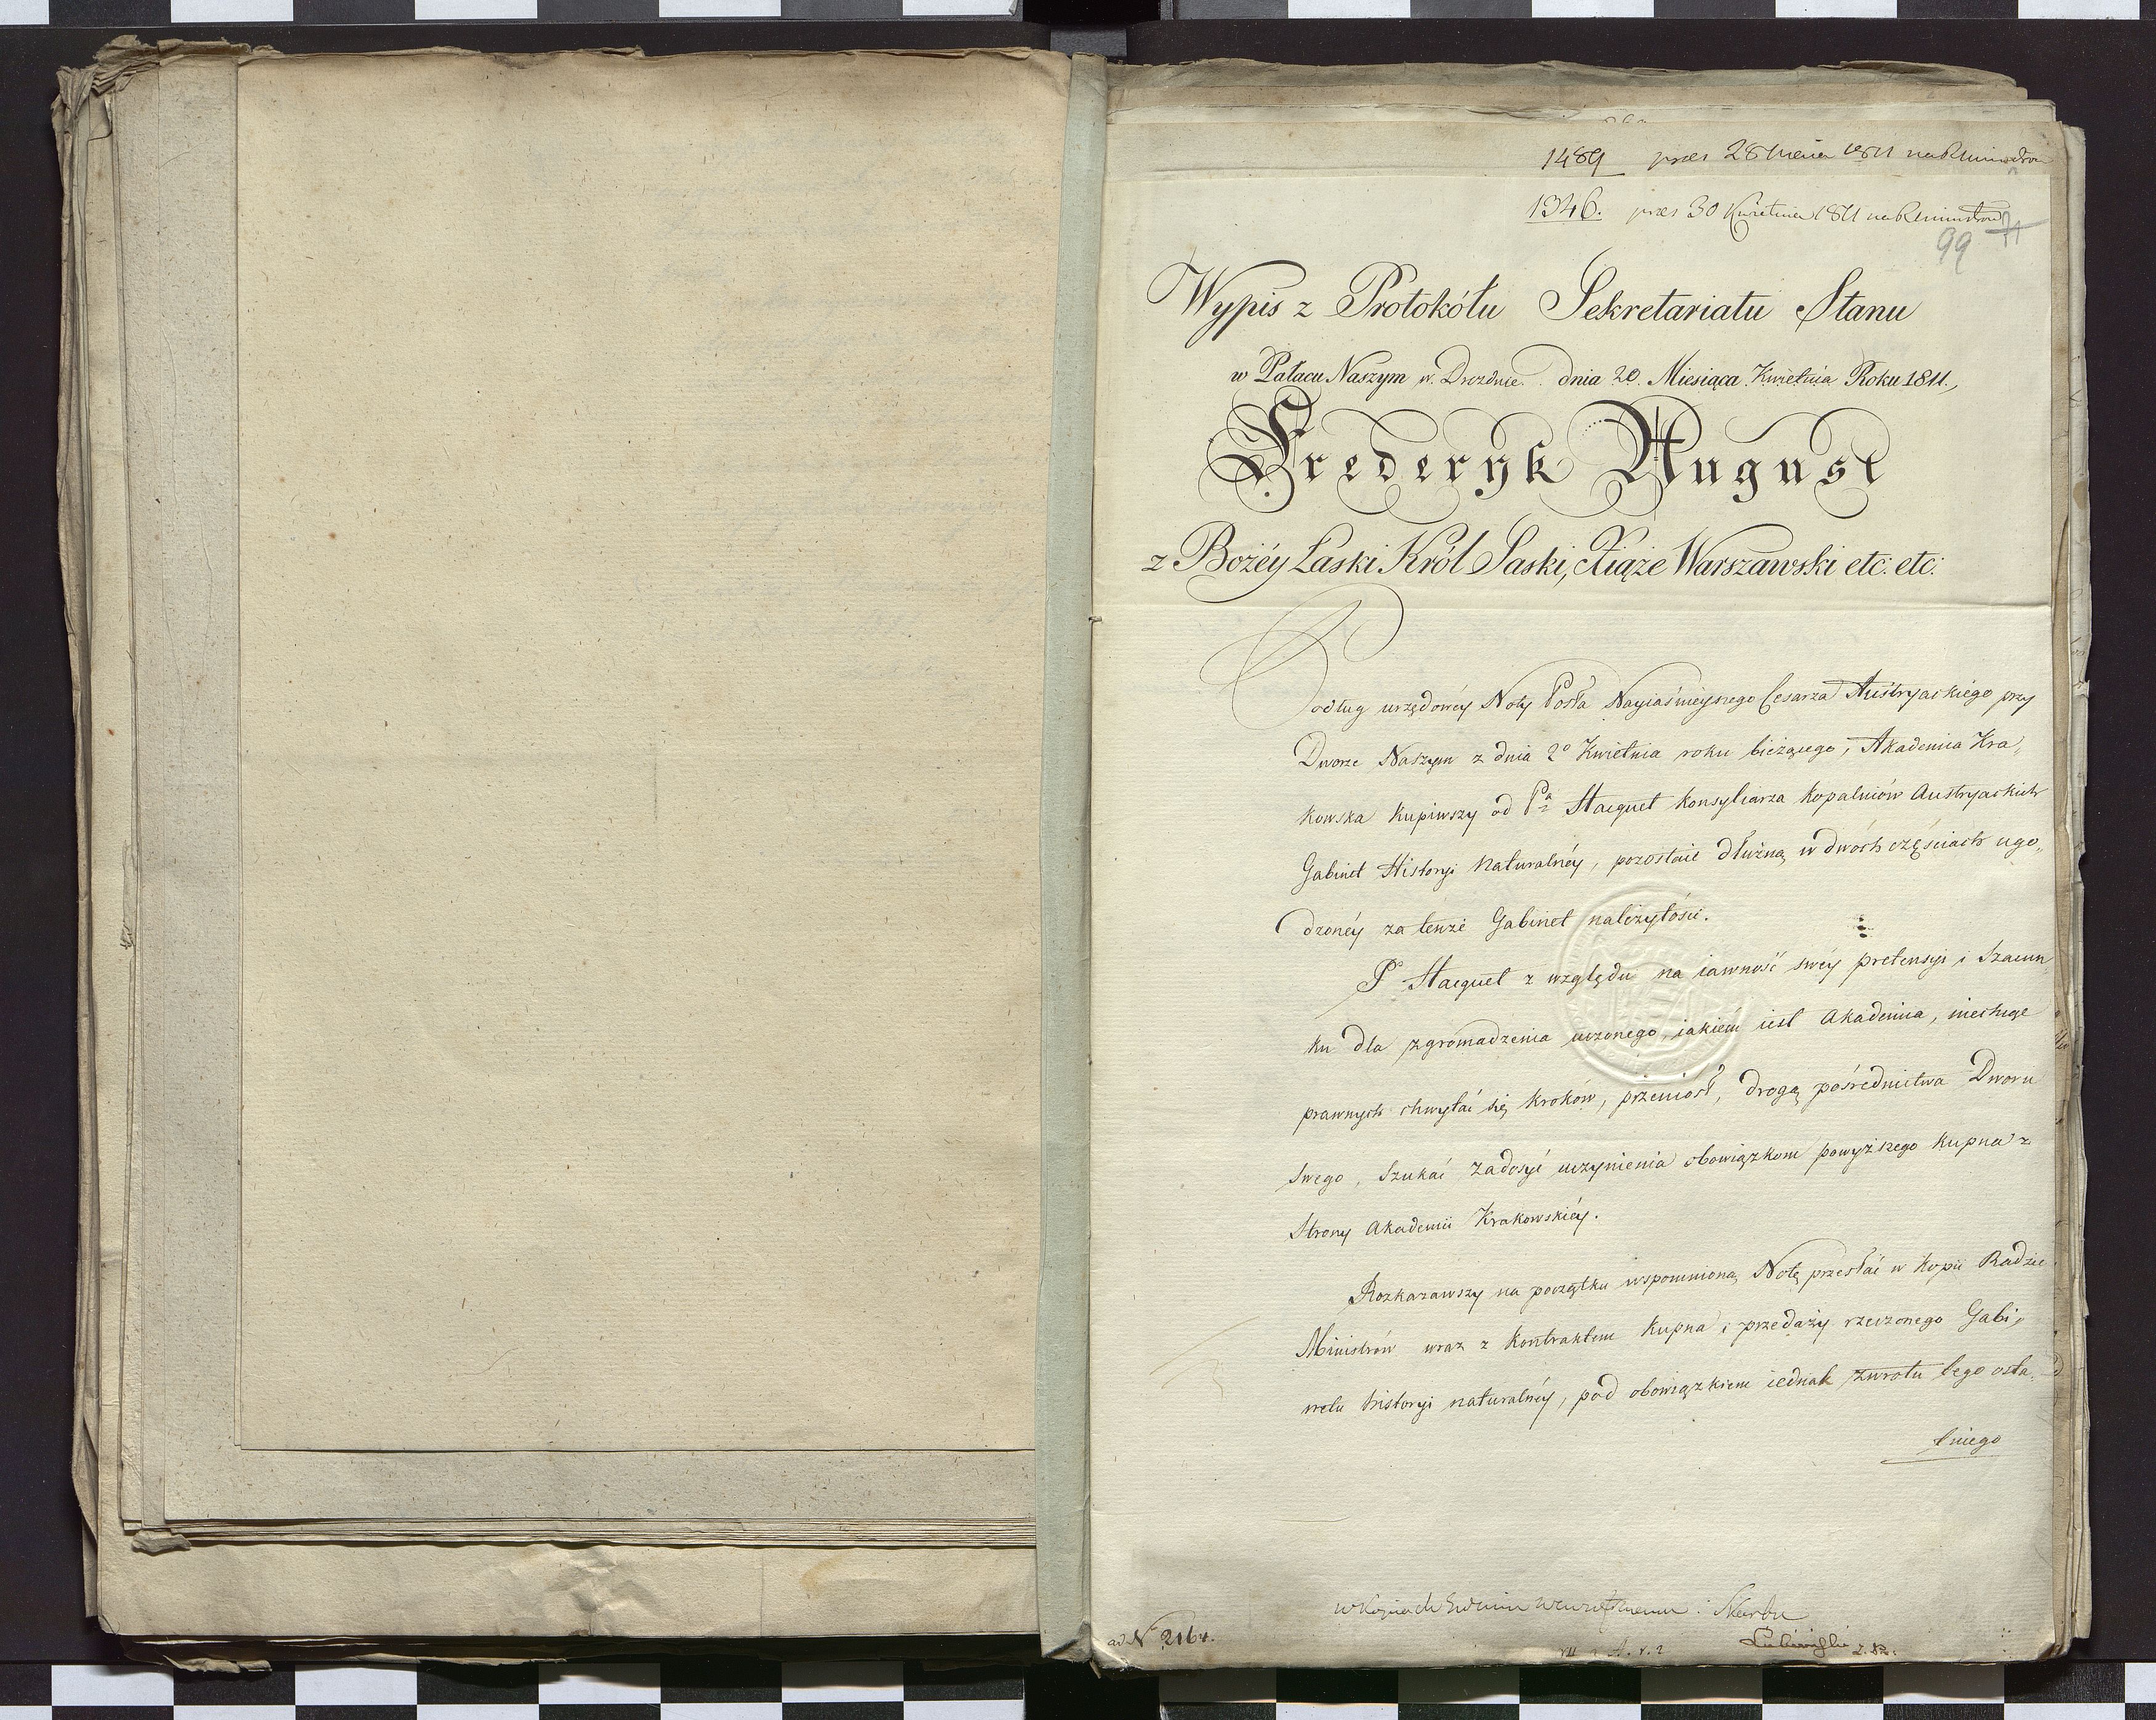 1489 prez 28 1811 na R
1346. prez 30 Kwietnia 1811 na R
99
Wypis z Protokółu Sekretariatu Stanu
w Pałacu Naszym w Dreznie. dnia 20. Miesiąca Kwietnia Roku 1811.,
Fryderyk August
z Bożéy Łaski Król Saski, Xiąże Warszawski etc: etc:
Podług urzędowéy Noty Posła Nayiaśnieyszego Cesarza Austryackiego przy
Dworze Naszym z dnia 2º Kwietnia roku bieżącego, Akademia Kra„
kowska kupiwszy od Pª Hacquet Konsyliarza kopalniów Austryackich
Gabinet Historyi Naturalnéy, pozostaie dłużną w dwóch częściach ugo„
dzonéy za tenże Gabinet należytości.
P. Hacquet z względu na iawność swéy pretensyi i Szacun„
ku dla zgromadzenia uczonego, iakiem iest Akademia, niechcąc
prawnych chwytać się kroków, przeniosł, drogą pośrednictwa Dworu
swego, Szukać zadosyć uczynienia obowiązkom powyższego kupna z
Strony Akademii Krakowskiéy.
Rozkazawszy na początku wspomnioną Notę przesłać w kopii Radzie
Ministrów wraz z kontraktem kupna i przedaży rzeczonego Gabi„
netu historyi naturalnéy, pod obowiązkiem iednak zwrotu tego osta„
tniego
w Kopiach Skarbu
ad Nº 2164.